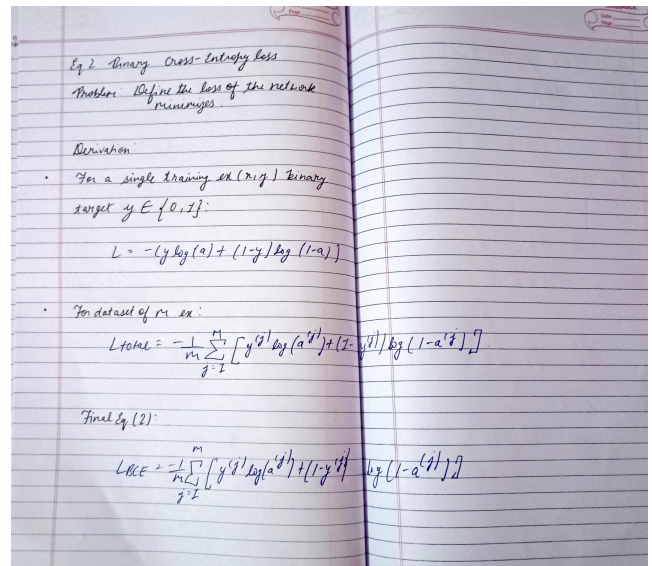 Eq 2 Binary Cross-Entropy loss
Problem: Define the loss of the network
minimizes
Derivation:
For a single training ex (x, y) binary
target y ∈ {0, 1}:
L = -(y log(a) + (1-y) log (1-a))
For dataset of m ex:
L total = -1/m Σ_{j=1}^{m} [y^{(j)} log(a^{(j)}) + (1-y^{(j)}) log(1-a^{(j)})]
Final Eq (2):
L BCE = -1/m Σ_{j=1}^{m} [y^{(j)} log(a^{(j)}) + (1-y^{(j)}) log(1-a^{(j)})]